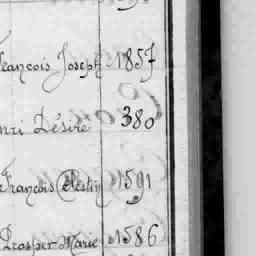 François Joseph 1857
nri Désiré 380
François Célestin 1591
Prosper Marie 1586